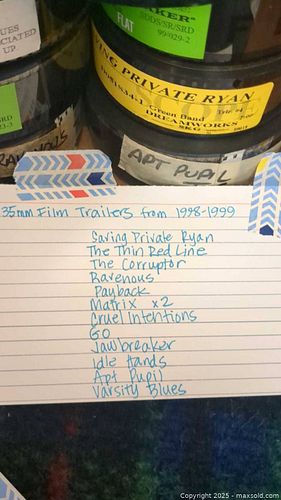 UES
CIATED
UP
FLAT
KER"
SDDS/SR/SRD
99-929-2
ING PRIVATE RYAN
Green Band
DREAMWORKS
SKG
RAVENOUS
APT PUPIL
35mm Film Trailers from 1998-1999
Saving Private Ryan
The Thin Red Line
The Corruptor
Ravenous
Payback
Matrix x2
Cruel Intentions
GO
Jawbreaker
Idle Hands
Apt Pupil
Varsity Blues
Copyright © 2025 - maxsold.com